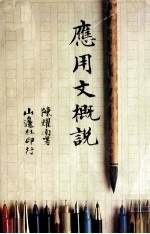 應用文概説
陳耀南署
山邊社印行